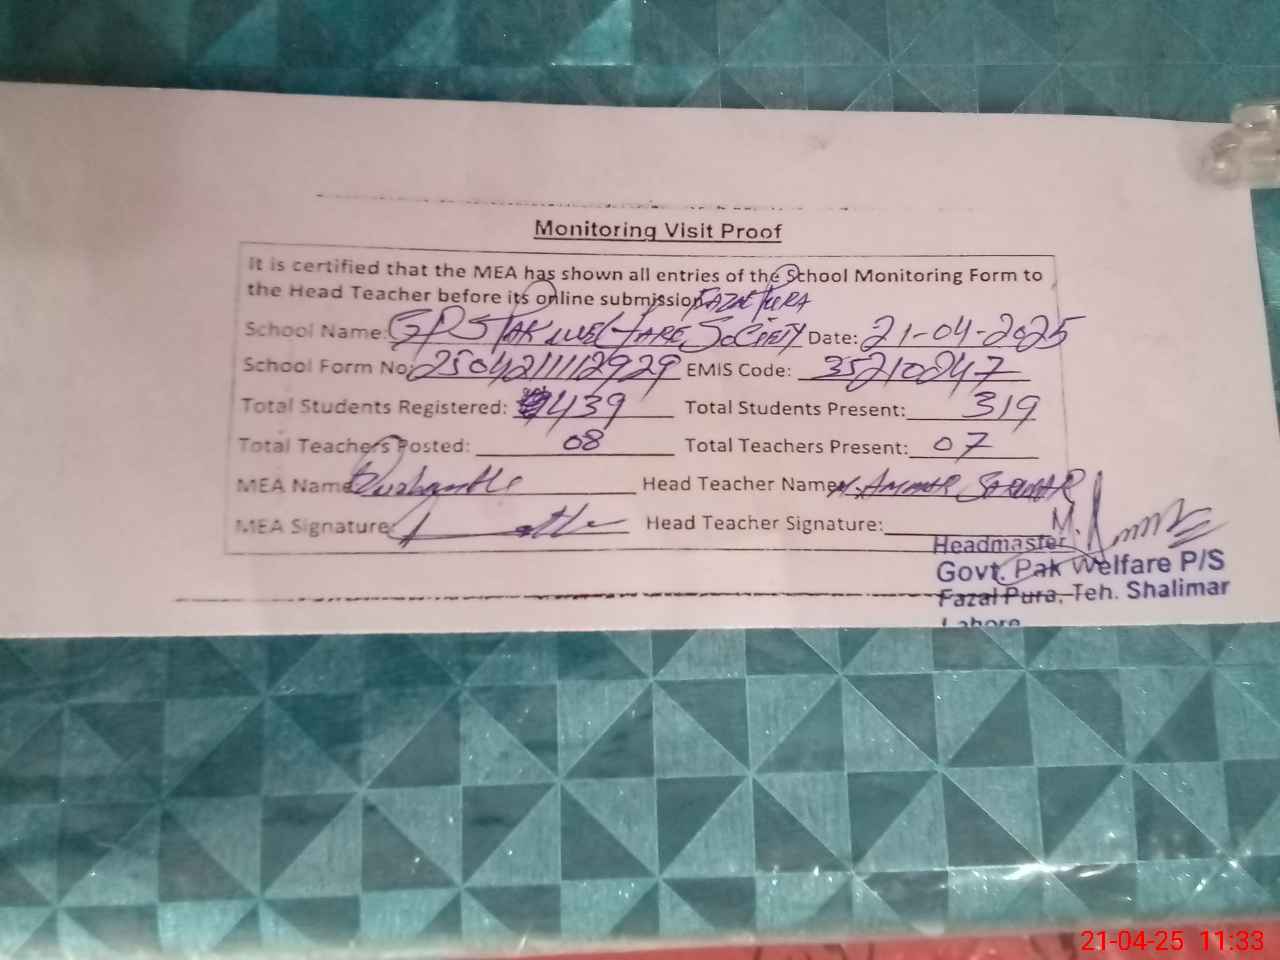 Monitoring Visit Proof
It is certified that the MEA has shown all entries of the School Monitoring Form to
the Head Teacher before its online submission
FAZAL PURA
School Name: GPS PAK WELFARE SOCIETY Date: 21-04-2025
School Form No: 2504211112929 EMIS Code: 35210247
Total Students Registered: 439 Total Students Present: 319
Total Teachers Posted: 08 Total Teachers Present: 07
MEA Name Head Teacher Name M. AMMAR SARWAR
MEA Signature: Head Teacher Signature:
Headmaster
Govt. Pak Welfare P/S
Fazal Pura, Teh. Shalimar
Lahore
21-04-25 11:33